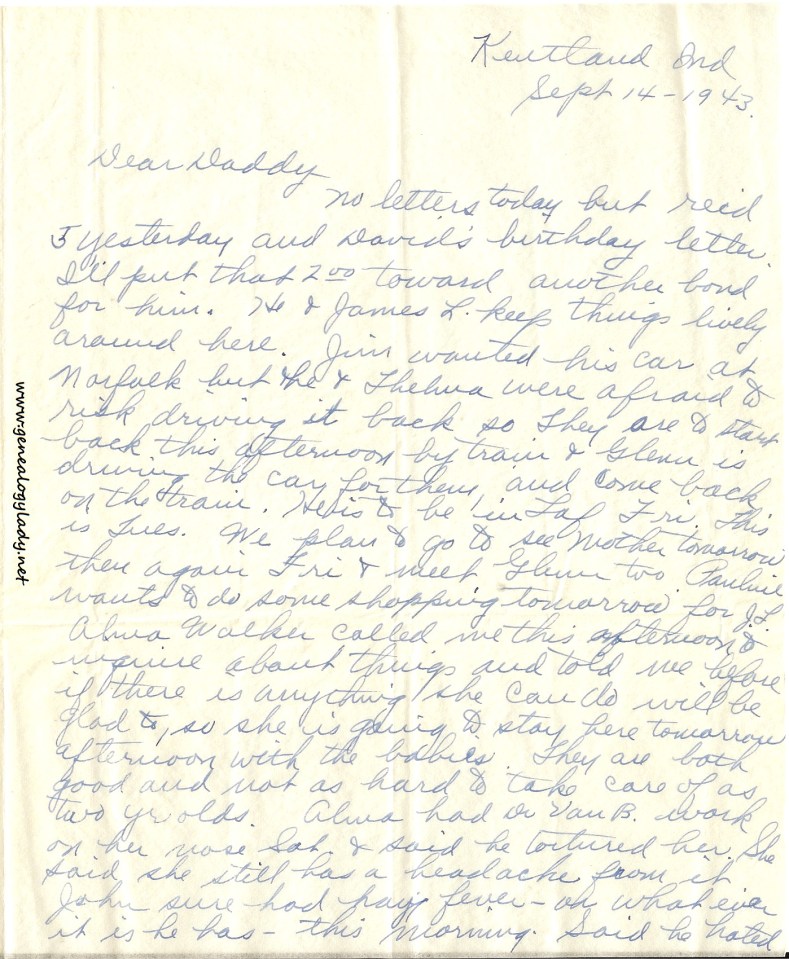 Kentland Ind
Sept 14-1943.
Dear Daddy
No letters today but rec'd
5 yesterday and David's birthday letter.
I'll put that 2 00 toward another bond
for him. He & James L. keep things lively
around here. Jim wanted his car at
Norfolk but he & Thelma were afraid to
risk driving it back so they are to start
back this afternoon by train & Glenn is
driving the car for them, and come back
on the train. He is to be in Laf Fri. This
is Tues. We plan to go to see Mother tomorrow
then again Fri & meet Glenn too. Pauline
wants to do some shopping tomorrow for J.L.
Alma Walker called me this afternoon to
inquire about things and told me before
if there is anything she can do will be
glad to, so she is going to stay here tomorrow
afternoon with the babies. They are both
good and not as hard to take care of as
two yr olds. Alma had Dr Van B. work
on her nose Sat. & said he tortured her. She
said she still has a headache from it
John sure had hay fever - or what ever
it is he has - this morning. Said he hated
www.genealogylady.net